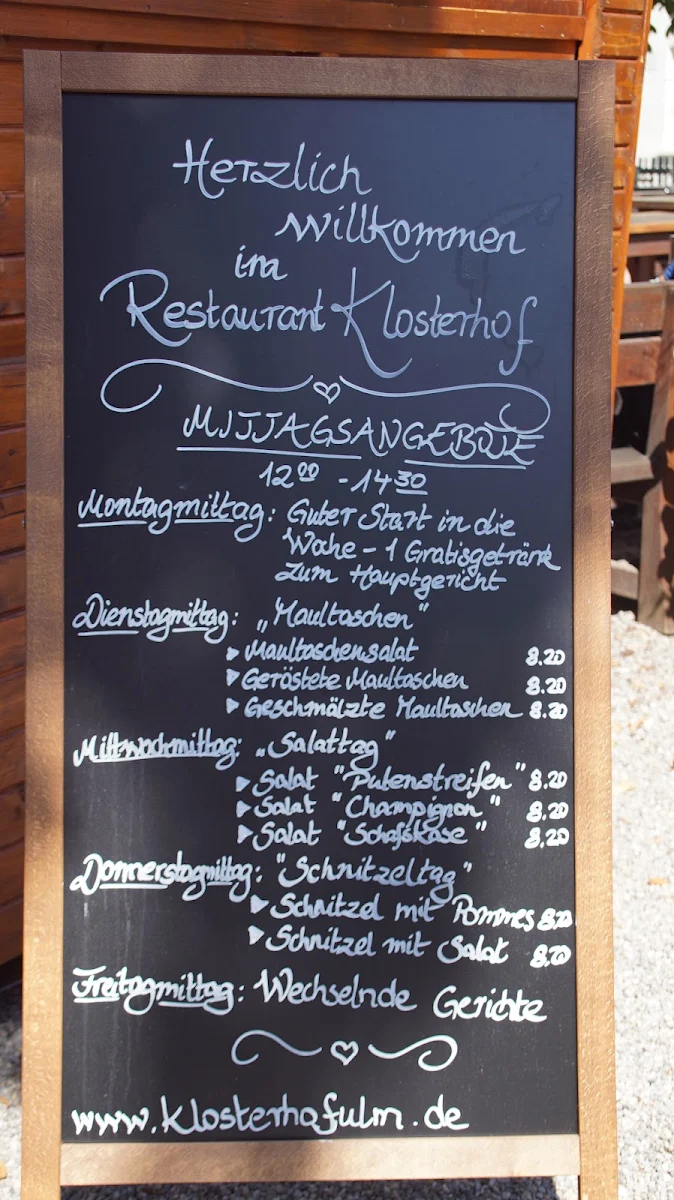 Herzlich
Willkommen
im
Restaurant Klosterhof
MITTAGSANGEBOTE
12 00 - 14 30
Montagmittag: Guter Start in die
Woche - 1 Gratisgetränk
zum Hauptgericht
Dienstagmittag: „Maultaschen"
▸ Maultaschensalat 8.20
▸ Geröstete Maultaschen 8.20
▸ Geschmälzte Maultaschen 8.20
Mittwochmittag: „Salattag"
▸ Salat "Putenstreifen" 8.20
▸ Salat "Champignon" 8.20
▸ Salat "Schafskäse" 8.20
Donnerstagmittag: "Schnitzeltag"
▸ Schnitzel mit Pommes 8.20
▸ Schnitzel mit Salat 8.20
Freitagmittag: Wechselnde Gerichte
www.klosterhofulm.de